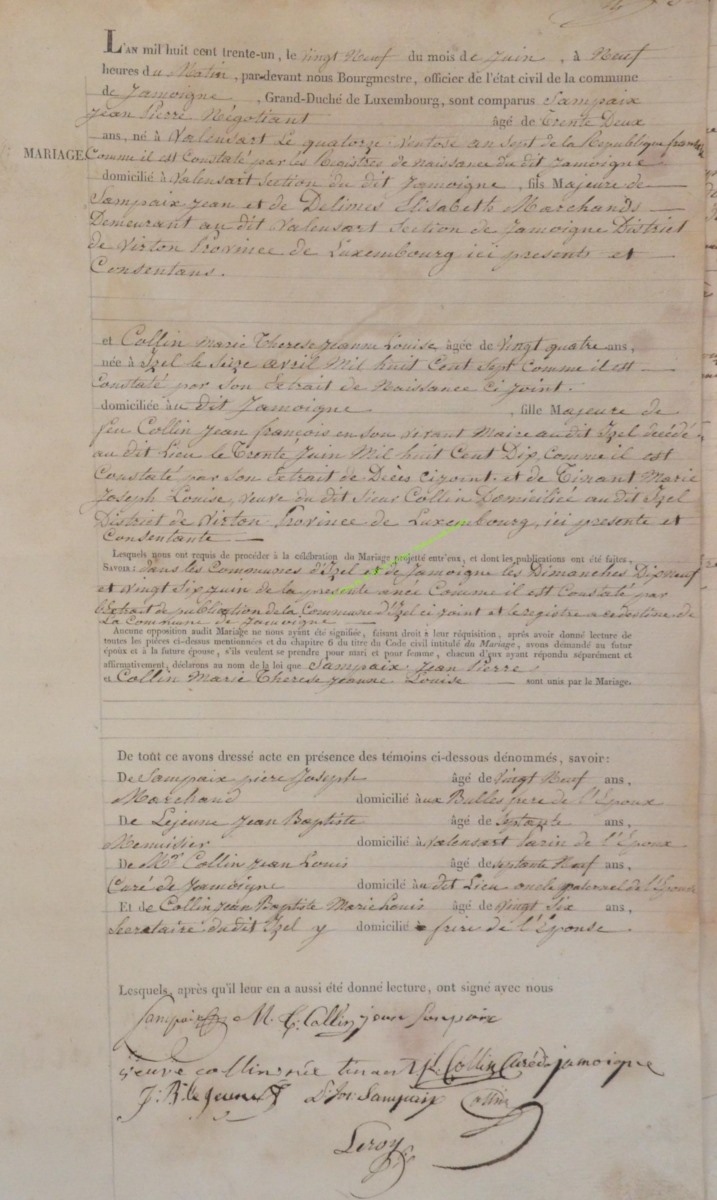 L'AN mil huit cent trente-un, le vingt Neuf du mois de Juin, à Neuf
heures du Matin, par-devant nous Bourgmestre, officier de l'état civil de la commune
de Jamoigne, Grand-Duché de Luxembourg, sont comparus Sampaix
Jean Pierre Négotiant âgé de Trente Deux
ans, né à Valensart Le quatorze Ventose an Sept de la Republique française
MARIAGE
Comme il est Constaté par les Registres de naissance du dit Jamoigne
domicilié à Valensart Section du dit Jamoigne, fils Majeure de
Sampaix Jean et de Delimes Elisabeth Marchands
Demeurant au dit Valensart Section de Jamoigne District
de Virton Province de Luxembourg ici presents et
Consentans.
et Collin Marie Therese Jeanne Louise âgée de Vingt quatre ans,
née à Izel le Seize avril Mil huit Cent Sept Comme il est
Constaté par Son Extrait de Naissance Ci joint.
domiciliée au dit Jamoigne, fille Majeure de
feu Collin Jean françois en son vivant Maire au dit Izel decédé
au dit Lieu le Trente Juin Mil huit Cent Dix Comme il est
Constaté par son Extrait de Décès ci joint. et de Tinant Marie
Joseph Louise, veuve du dit Sieur Collin Domiciliée au dit Izel
District de Virton Province de Luxembourg, ici presente et
Consentante
Lesquels nous ont requis de procéder à la célébration du Mariage projetté entr'eux, et dont les publications ont été faites,
Savoir: dans les Communes d'Izel et de Jamoigne les Dimanches Dix neuf
et vingt Six Juin de la presente anée Comme il est Constate par
l'Extrait de publication de la Commune d'Izel ci joint et le registre a ce destiné de
La Commune de Jamoigne
Aucune opposition audit Mariage ne nous ayant été signifiée, faisant droit à leur réquisition, après avoir donné lecture de
toutes les pièces ci-dessus mentionnées et du chapitre 6 du titre du Code civil intitulé du Mariage, avons demandé au futur
époux et à la future épouse, s'ils veulent se prendre pour mari et pour femme, chacun d'eux ayant répondu séparément et
affirmativement, déclarons au nom de la loi que Sampaix Jean Pierre
et Collin Marie Therese Jeanne Louise sont unis par le Mariage.
De tout ce avons dressé acte en présence des témoins ci-dessous dénommés, savoir:
De Sampaix piere Joseph âgé de Vingt Neuf ans,
Marchand domicilié aux Bulles frere de l'Epoux
De Lejeune Jean Baptiste âgé de Septante ans,
Menuisier domicilié à Valensart de l'Epoux
De Mr Collin Jean Louis âgé de Septante Neuf ans,
Curé de Jamoigne domicilié au dit Lieu oncle paternel de l'Epouse
Et de Collin Jean Baptiste Marie Louis âgé de Vingt Six ans,
Secrataire du dit Izel y domicilié frere de l'Eponse.
Lesquels, après qu'il leur en a aussi été donné lecture, ont signé avec nous
Sampaix M. T. Collin jean Sanpaix
veuve collin née tinant J. L. Collin Curé de jamoigne
J: Bte le jeune Sampaix Collin
Leroy